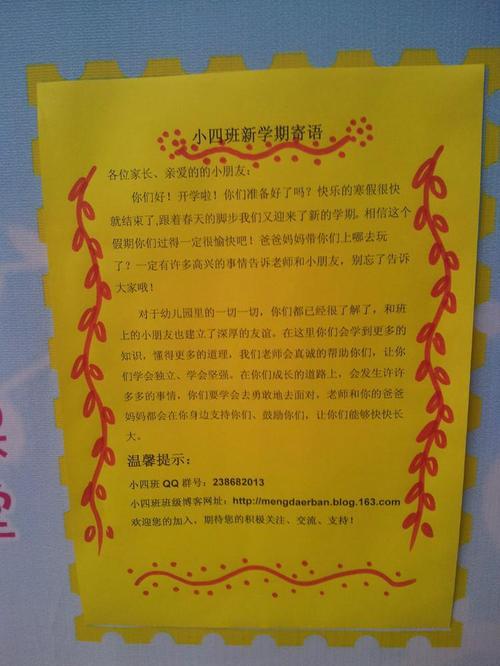 小四班新学期寄语
各位家长、亲爱的的小朋友：
你们好！开学啦！你们准备好了吗？快乐的寒假很快
就结束了,跟着春天的脚步我们又迎来了新的学期。相信这个
假期你们过得一定很愉快吧！爸爸妈妈带你们上哪去玩
了？一定有许多高兴的事情告诉老师和小朋友，别忘了告诉
大家哦！
对于幼儿园里的一切一切，你们都已经很了解了，和班
上的小朋友也建立了深厚的友谊。在这里你们会学到更多的
知识，懂得更多的道理，我们老师会真诚的帮助你们，让你
们学会独立、学会坚强。在你们成长的道路上，会发生许许
多多的事情，你们要学会去勇敢地去面对，老师和你的爸爸
妈妈都会在你身边支持你们、鼓励你们，让你们能够快快长
大。
温馨提示：
小四班 QQ 群号：238682013
小四班班级博客网址：http://mengdaerban.blog.163.com
欢迎您的加入，期待您的积极关注、交流、支持！